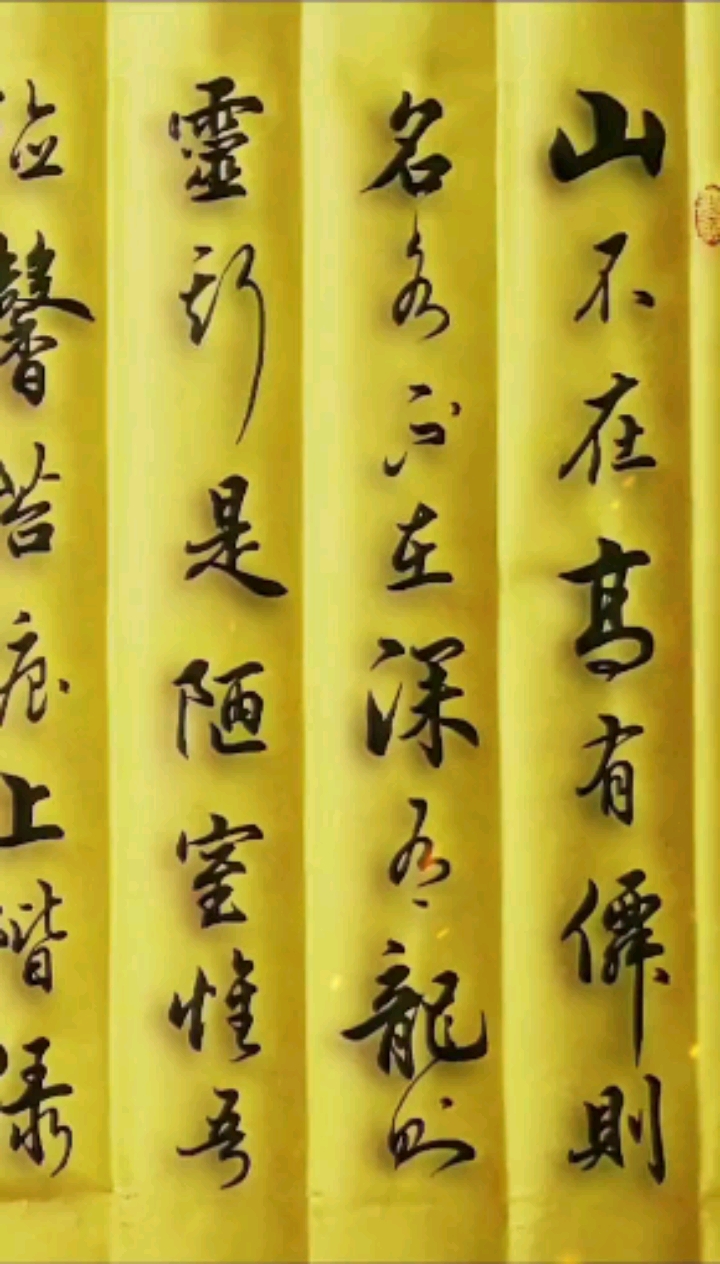 山不在高有僊則
名水不在深有龍則
靈斯是陋室惟吾
德馨苔痕上階綠